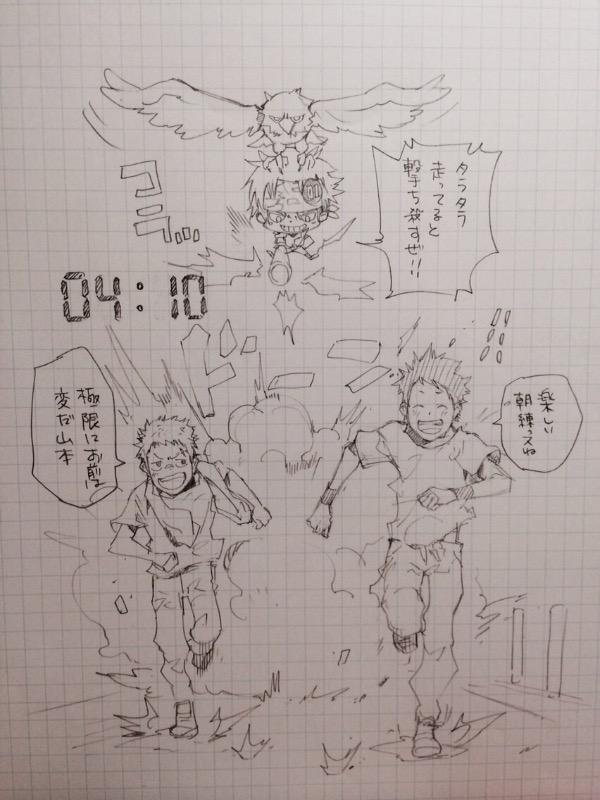 タラタラ
走ってると
撃ち殺すぜ!!
コラ…
04:10
ドーン
楽しい
朝練っスね
極限にお前は
変だ山本